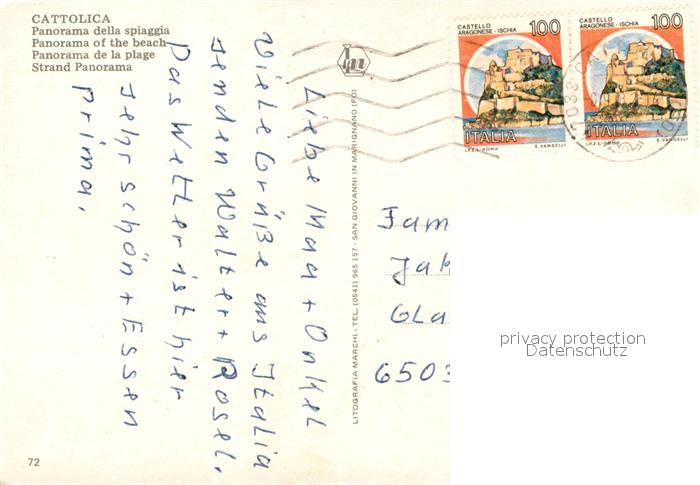 CATTOLICA
Panorama della spiaggia
Panorama of the beach
Panorama de la plage
Strand Panorama
CASTELLO
ARAGONESE - ISCHIA
100
ITALIA
I.P.Z.S. - ROMA
E. VANGELLI
CASTELLO
ARAGONESE - ISCHIA
100
ITALIA
I.P.Z.S. - ROMA
E. VANGELLI
Liebe + Onkel
Viele Grüße aus Italia
senden Walter + Rosel.
Das Wetter ist hier
sehr schön + Essen
prima.
LITOGRAFIA MARCHI - TEL. (0541) 965 157 - SAN GIOVANNI IN MARIGNANO (FO)
Fam
Jak
Gla
6503
privacy protection
Datenschutz
72